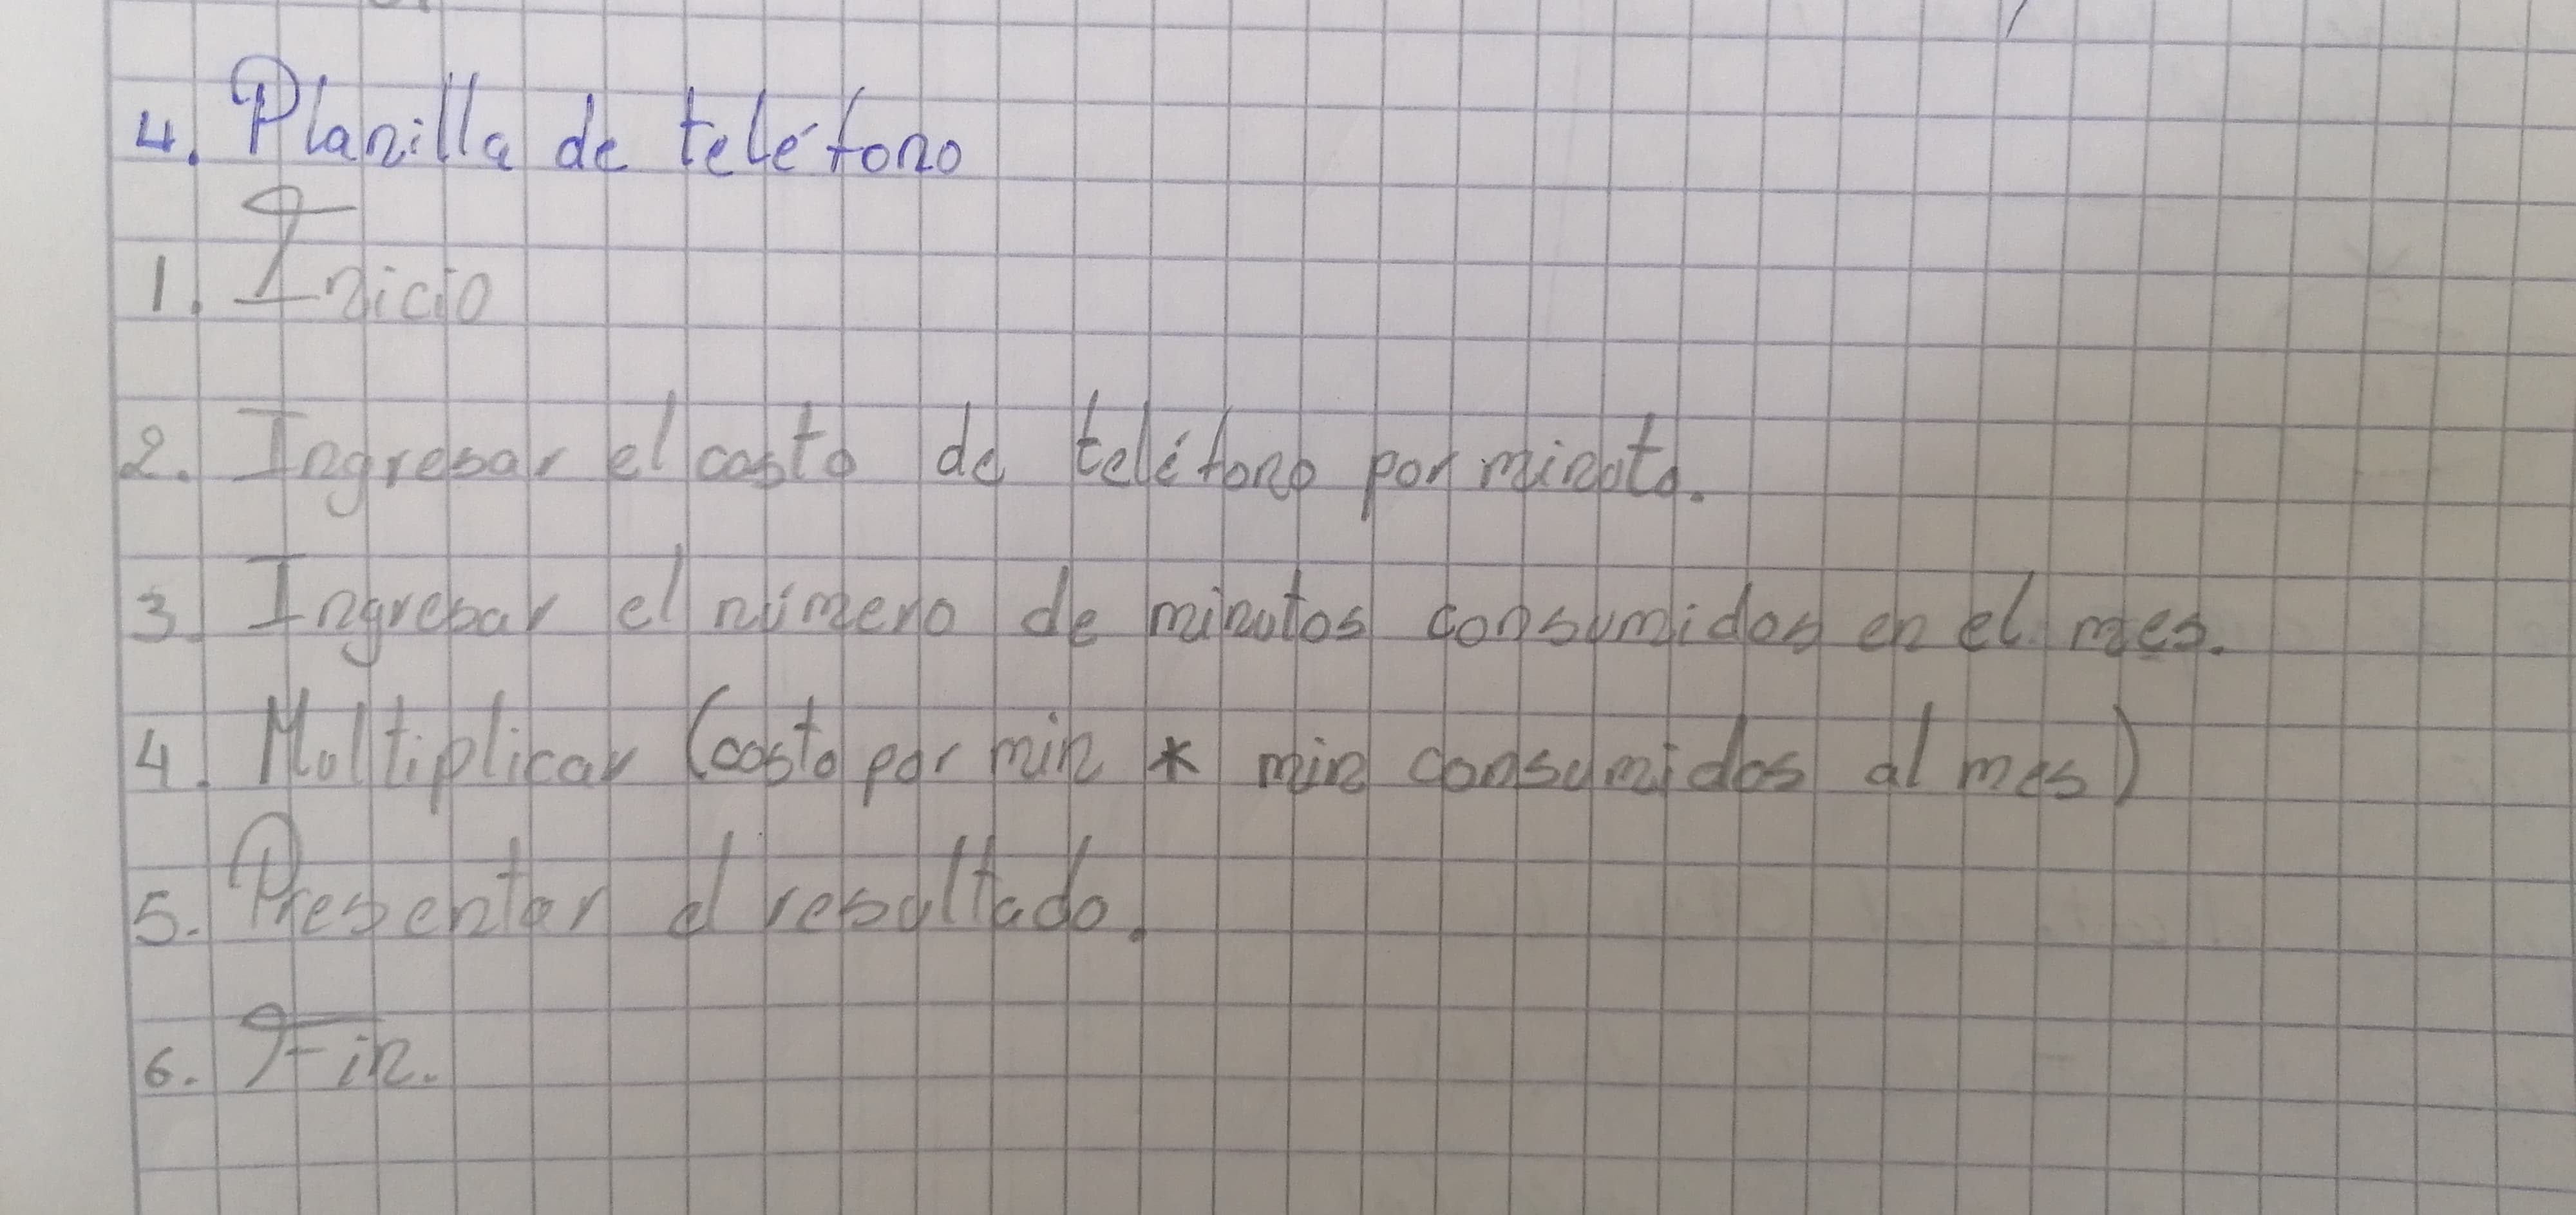 4. Planilla de teléfono
1. Inicio
2. Ingresar el costo de teléfono por minuto.
3. Ingresar el número de minutos consumidos en el mes.
4. Multiplicar (costo por min * min consumidos al mes)
5. Presentar el resultado.
6. Fin.